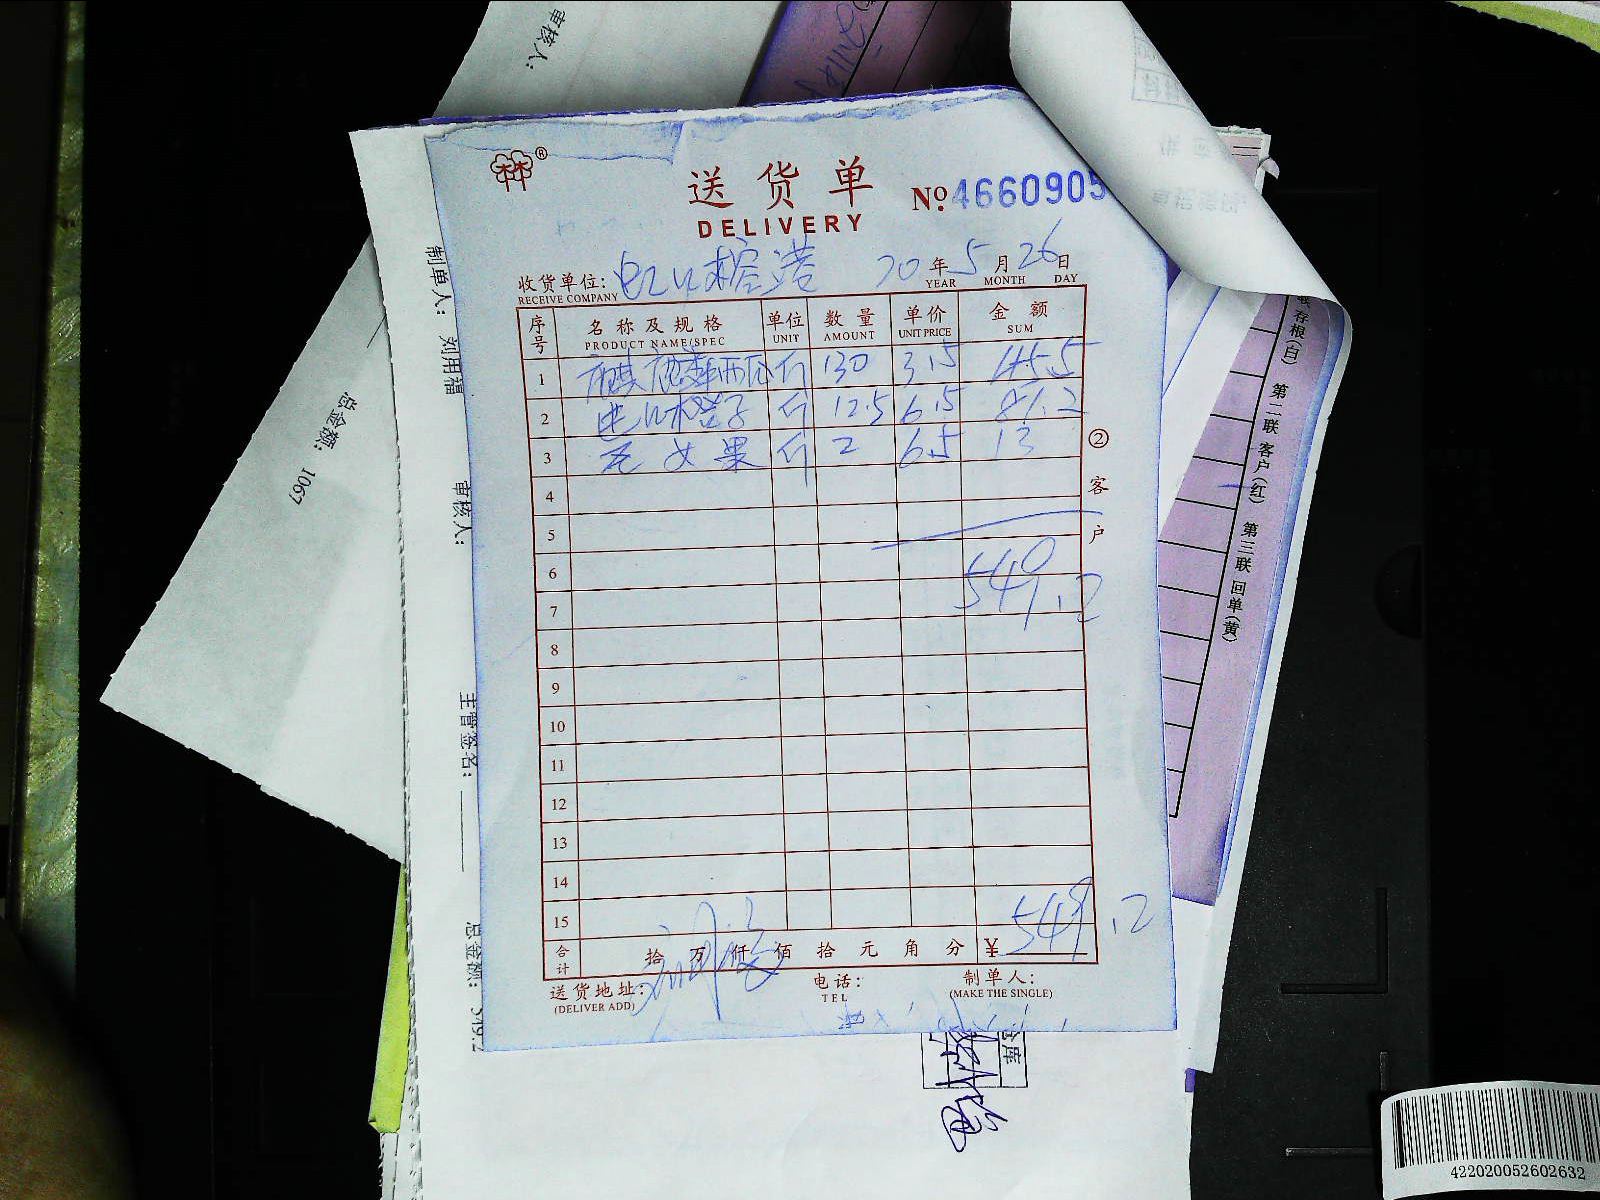 审核人:
送货单
DELIVERY
№ 4660905
收货单位: 20年 5月 26日
RECEIVE COMPANY YEAR MONTH DAY
序号 名称及规格 单位 数量 单价 金额
PRODUCT NAME/SPEC UNIT AMOUNT UNIT PRICE SUM
1 斤 130 3.5 455
2 斤 12.5 6.5 81.2
3 圣女果 斤 2 6.5 13
4
5
6
7 549.2
8
9
10
11
12
13
14
15
合计 拾 万 仟 佰 拾 元 角 分 ¥ 549.2
送货地址: 电话: 制单人:
(DELIVER ADD) TEL (MAKE THE SINGLE)
② 客户
制单人: 刘用福
审核人:
主管签名:
总金额: 549.2
总金额: 1067
存根(白) 第二联 客户(红) 第三联 回单(黄)
仓库
422020052602632